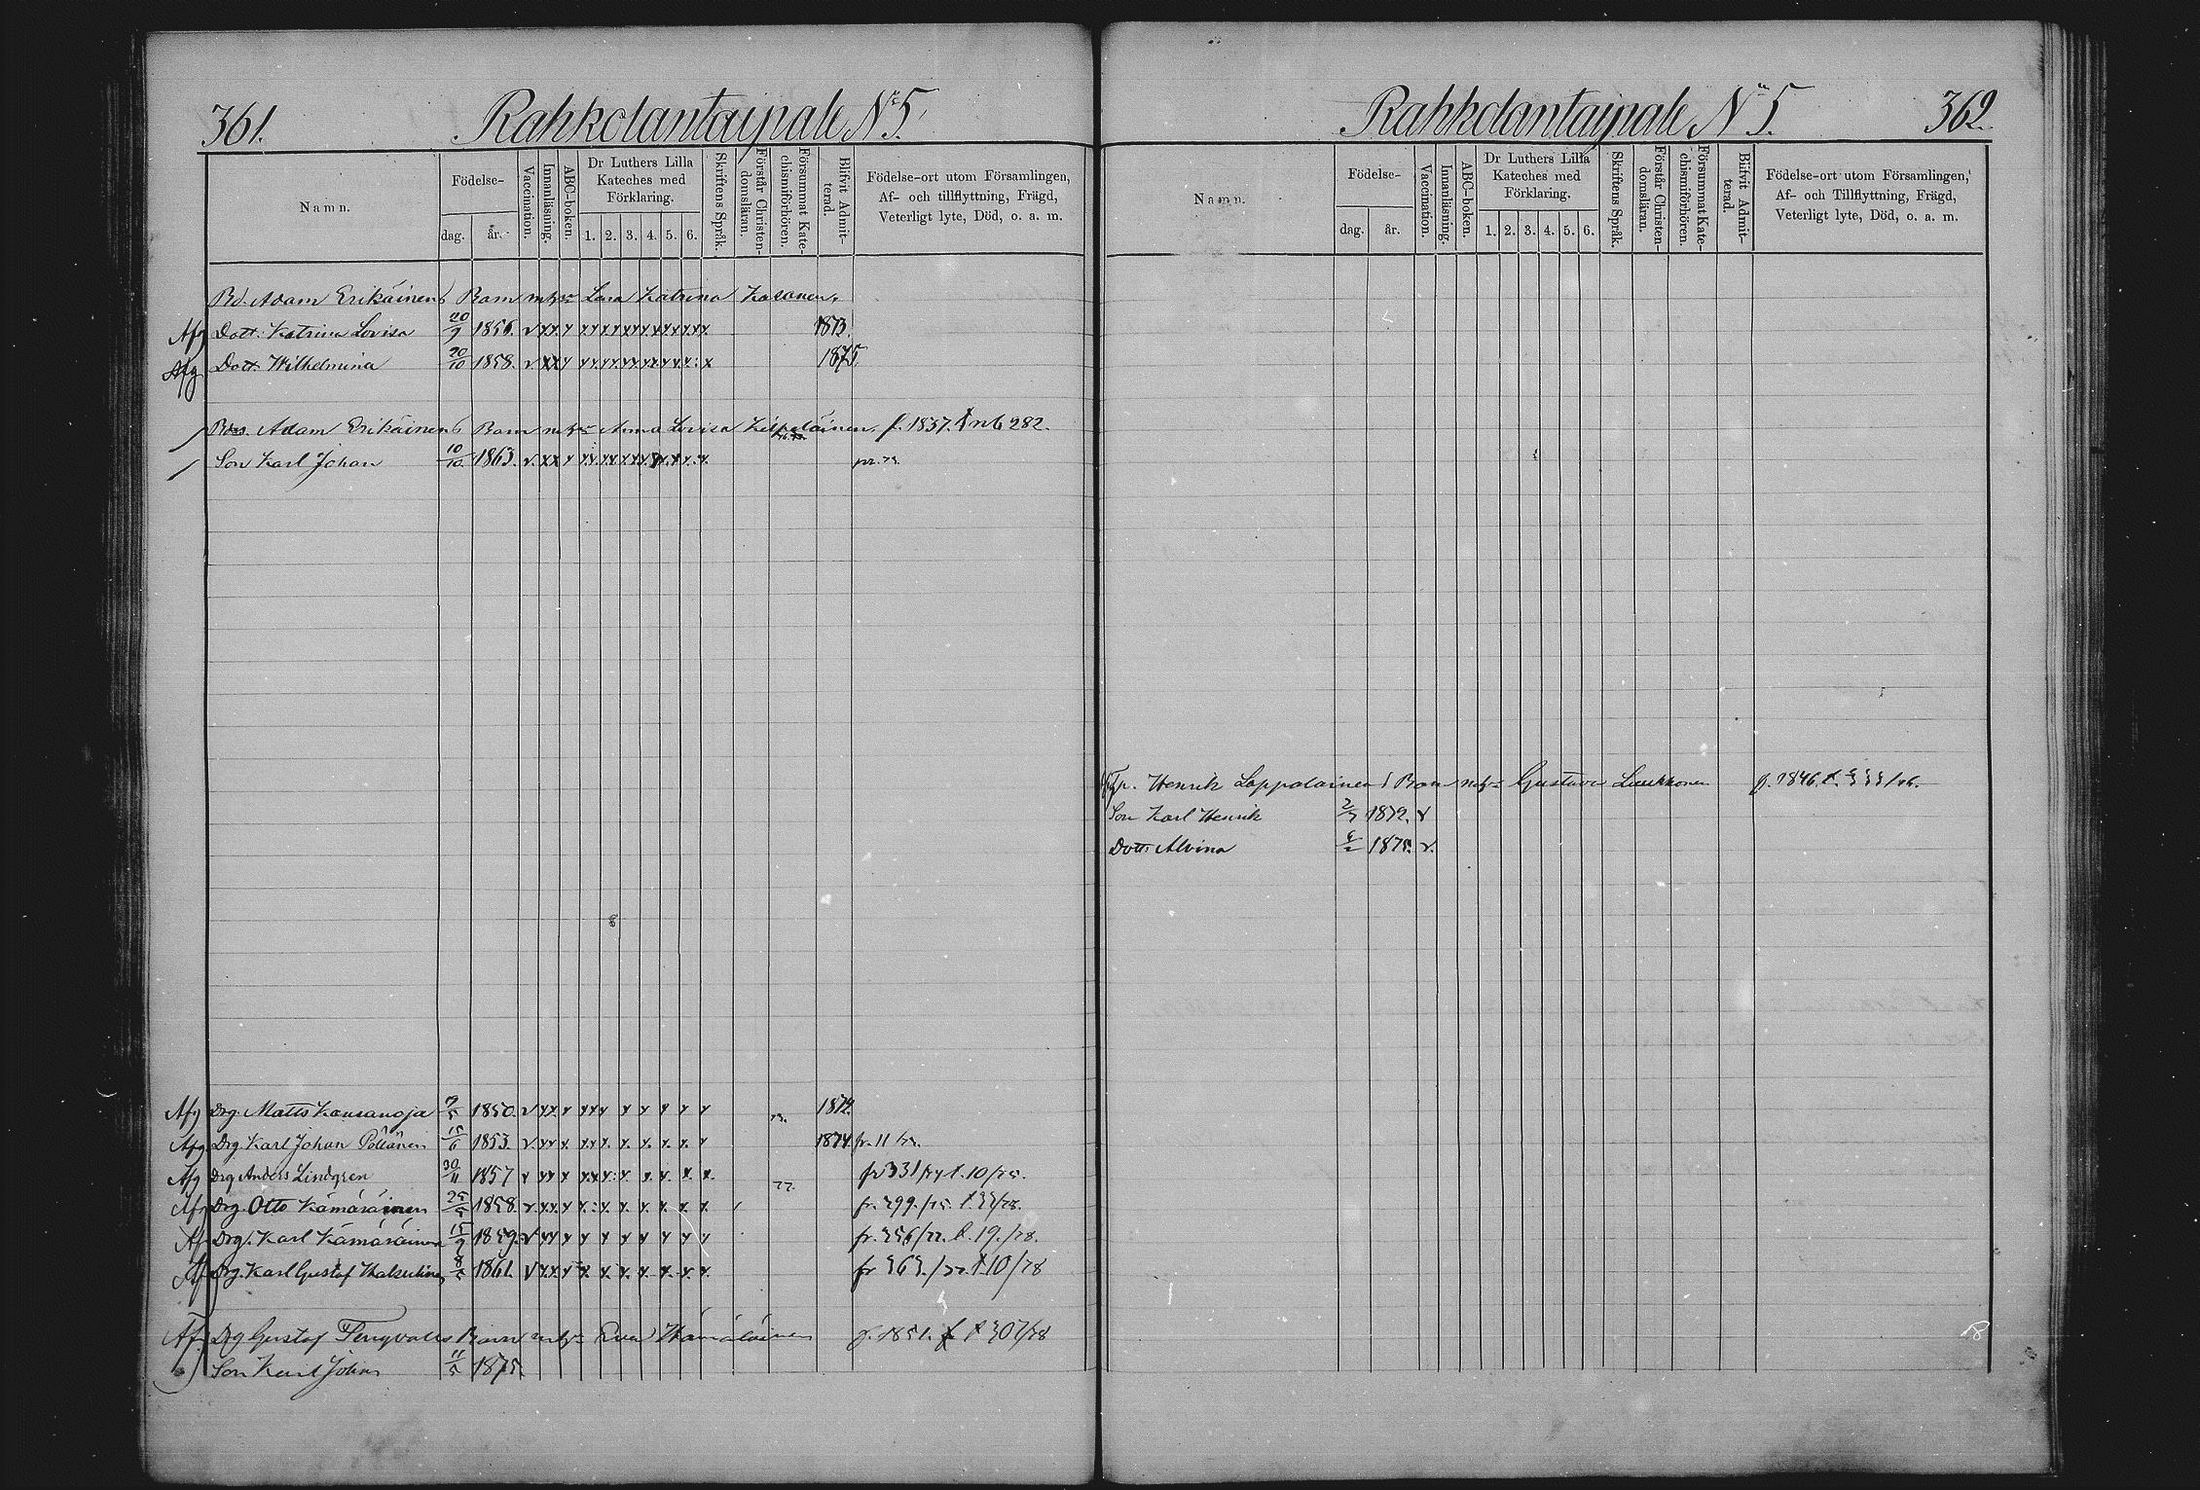 361.
Rahkolantaipale N:5.
Namn.
Födelse-
dag.
år.
Vaccination.
Innanläsning.
ABC-boken.
Dr Luthers Lilla
Kateches med
Förklaring.
1. 2. 3. 4. 5. 6.
Skriftens Språk.
Förstår Christen-
domsläran.
Försummat Kate-
chismiförhören.
Blifvit Admit-
terad.
Födelse-ort utom Församlingen,
Af- och tillflyttning, Frägd,
Veterligt lyte, Död, o. a. m.
Adam Erikäinens Barn Katrina
Afg Dott. Katrina Lovisa 20/9 1856. 1873.
Afg Dott. Wilhelmina 20/10 1858. 1875.
Adam Erikäinens Barn Anna Lovisa f. 1837. 282.
Son Karl Johan 10/10 1863.
Afg Drg. Matts 1850. 1872.
Afg Drg. Karl Johan Pöllänen 15/6 1853. 1874. fr. 11
Afg Drg Anders Lindgren 30/11 1857 fr 331 10/75.
Afg Drg. Otto Kämäräinen 1858. fr. 299./75.
Af Drg. Karl Kämäräinen 15/9 1859. fr. 356/77. 19./78.
Af Drg. Karl Gustaf 1861. fr 363./77. 10/78
Af. Drg Gustaf Tengvalls Barn Eva Hämäläinen f. 1851. 307/78
Son Karl Johan 1875.
Rahkolantaipale N:5.
362.
Namn.
Födelse-
dag.
år.
Vaccination.
Innanläsning.
ABC-boken.
Dr Luthers Lilla
Kateches med
Förklaring.
1. 2. 3. 4. 5. 6.
Skriftens Språk.
Förstår Christen-
domsläran.
Försummat Kate-
chismiförhören.
Blifvit Admit-
terad.
Födelse-ort utom Församlingen,
Af- och Tillflyttning, Frägd,
Veterligt lyte, Död, o. a. m.
Henrik Lappalainens Barn Gustava Laukkanen f. 1846.
Son Karl Henrik 2/7 1872.
Dott. Alvina 1875.